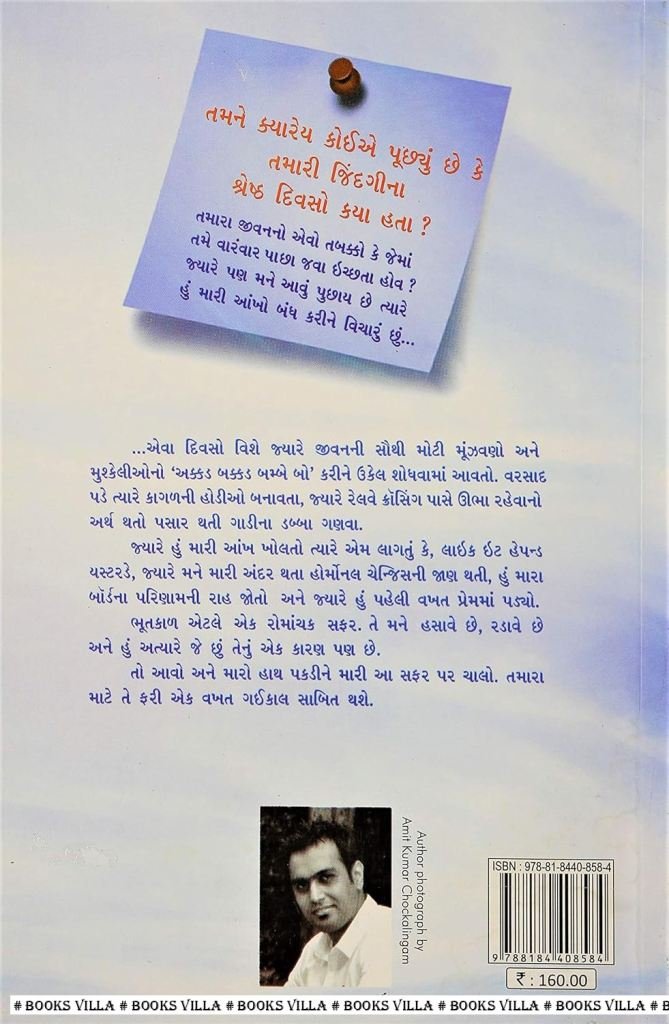 તમને ક્યારેય કોઈએ પૂછ્યું છે કે
તમારી જિંદગીના
શ્રેષ્ઠ દિવસો કયા હતા ?
તમારા જીવનનો એવો તબક્કો કે જેમાં
તમે વારંવાર પાછા જવા ઇચ્છતા હોવ ?
જ્યારે પણ મને આવું પુછાય છે ત્યારે
હું મારી આંખો બંધ કરીને વિચારું છું...
...એવા દિવસો વિશે જ્યારે જીવનની સૌથી મોટી મૂંઝવણો અને
મુશ્કેલીઓનો ‘અક્કડ બક્કડ બમ્બે બો’ કરીને ઉકેલ શોધવામાં આવતો. વરસાદ
પડે ત્યારે કાગળની હોડીઓ બનાવતા, જ્યારે રેલવે ક્રૉસિંગ પાસે ઊભા રહેવાનો
અર્થ થતો પસાર થતી ગાડીના ડબ્બા ગણવા.
જ્યારે હું મારી આંખ ખોલતો ત્યારે એમ લાગતું કે, લાઇક ઇટ હેપન્ડ
યસ્ટરડે, જ્યારે મને મારી અંદર થતા હોર્મોનલ ચેન્જિસની જાણ થતી, હું મારા
બૉર્ડના પરિણામની રાહ જોતો અને જ્યારે હું પહેલી વખત પ્રેમમાં પડ્યો.
ભૂતકાળ એટલે એક રોમાંચક સફર. તે મને હસાવે છે, રડાવે છે
અને હું અત્યારે જે છું તેનું એક કારણ પણ છે.
તો આવો અને મારો હાથ પકડીને મારી આ સફર પર ચાલો. તમારા
માટે તે ફરી એક વખત ગઈકાલ સાબિત થશે.
Author photograph by
Amit Kumar Chockalingam
ISBN : 978-81-8440-858-4
9 788184 408584
₹ : 160.00
# BOOKS VILLA # BOOKS VILLA # BOOKS VILLA # BOOKS VILLA # BOOKS VILLA # BOOKS VILLA # B